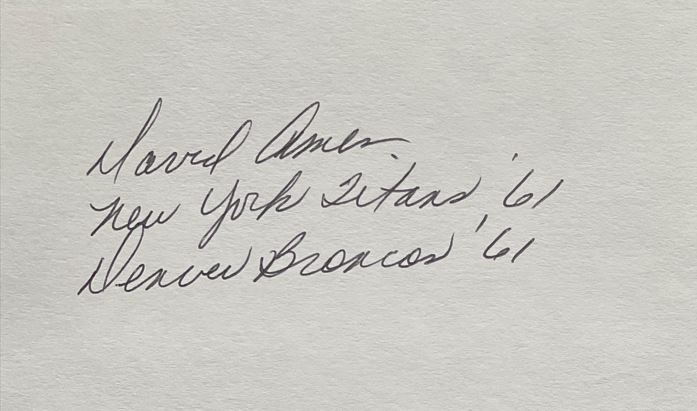 David Ames
New York Titans '61
Denver Broncos '61